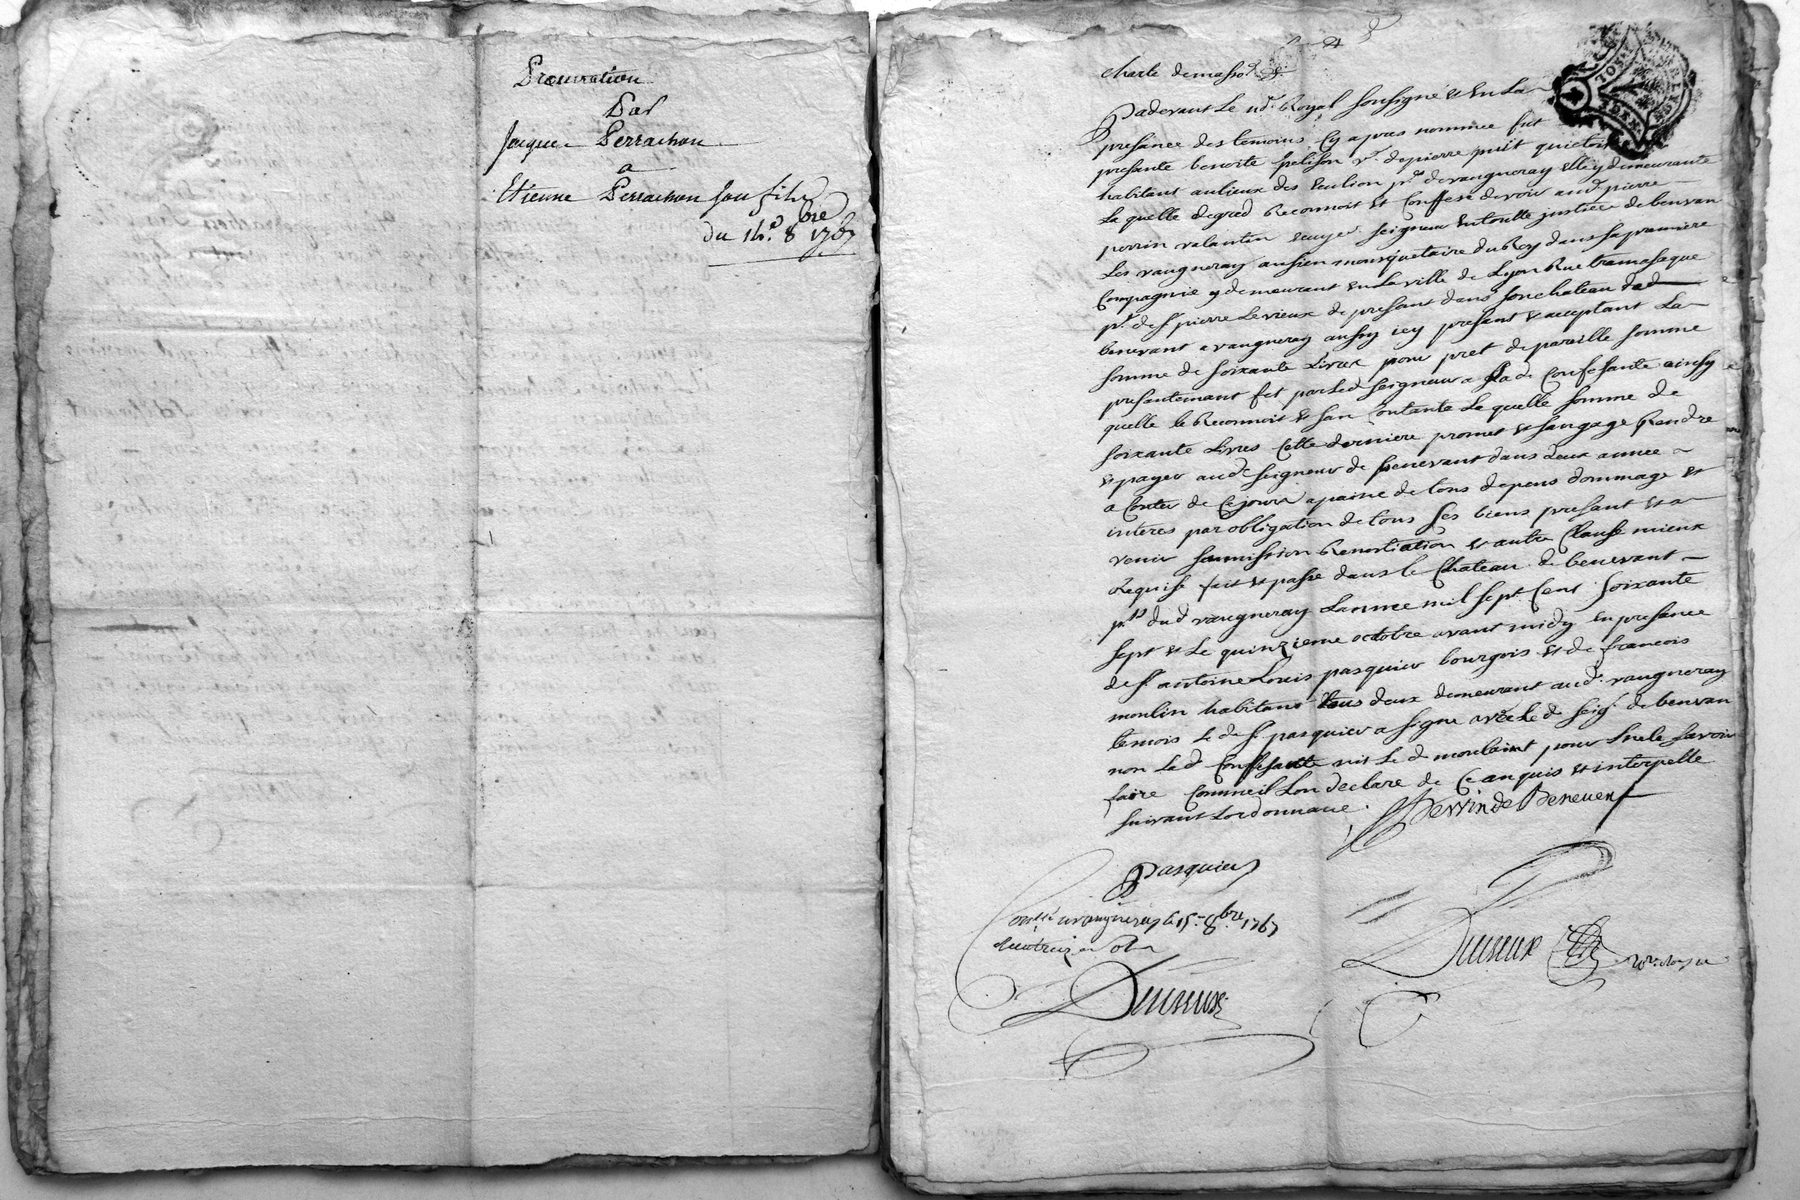 Procuration
Par
Jacque Perrachon
a
Etienne Perrachon son fils
du 14e 8bre 1767
charle demasso
Padevant le nre Royal sousigné et en la
presance des temoins cy apres nommee fut
presante benoite pelison ve de pierre puit quietoit
habitant aulieux des eulion psse de vaugneray elle y demeurante
la quelle degred Reconnoit et Confesse devoir aud pierre
perrin valantin ecuyer seigneur entoutte justice de benvan
les vaugneray ansien mousquetaire du Roy dans sa premiere
Compagnie y demeurant en la ville de Lyon Rue tramasaque
psse de st pierre levieux de presant dans son chateau dud
benevant a vaugneray aussy icy present et acceptant la
somme de soixante Livres pour pret de pareille somme
presantemant fet par led seigneur a lad Confesante ainsy
quelle le Reconnoit et san Contante la quelle somme de
soixante Livres Cette derniere promet et sangage Rendre
et payer aud seigneur de benevant dans deux annee
a Conter de Cejour a paine de tous depens dommage et
interes par obligation de tous ses biens presant et a
venir soumission Renontiation et autre Clause mieux
Requise fait et passé dans le Chateau de benevant
psse dud vaugneray Lanne mil sept Cent soixante
sept et le quinzieme octobre avant midy en presance
de sr antoine Louis pasquier bourgois et de francois
moulin habitans tous deux demeurant aud vaugneray
temois le d sr pasquier a signe avec le d seigr de benvan
non la d Confessante nit le d moulin pour ne le savoir
faire Comme il Lon declare de Ce anquis et interpelle
suivant Lordonnance.
Perrin de Benevent
Pasquier
Conllé a vaugneray le 15 8bre 1767
Reçu treize s
Duivieux
nre royal